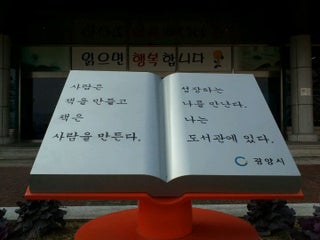 읽으면 행복합니다
사람은
책을 만들고
책은
사람을 만든다.
성장하는
나를 만난다.
나는
도서관에 있다.
광양시